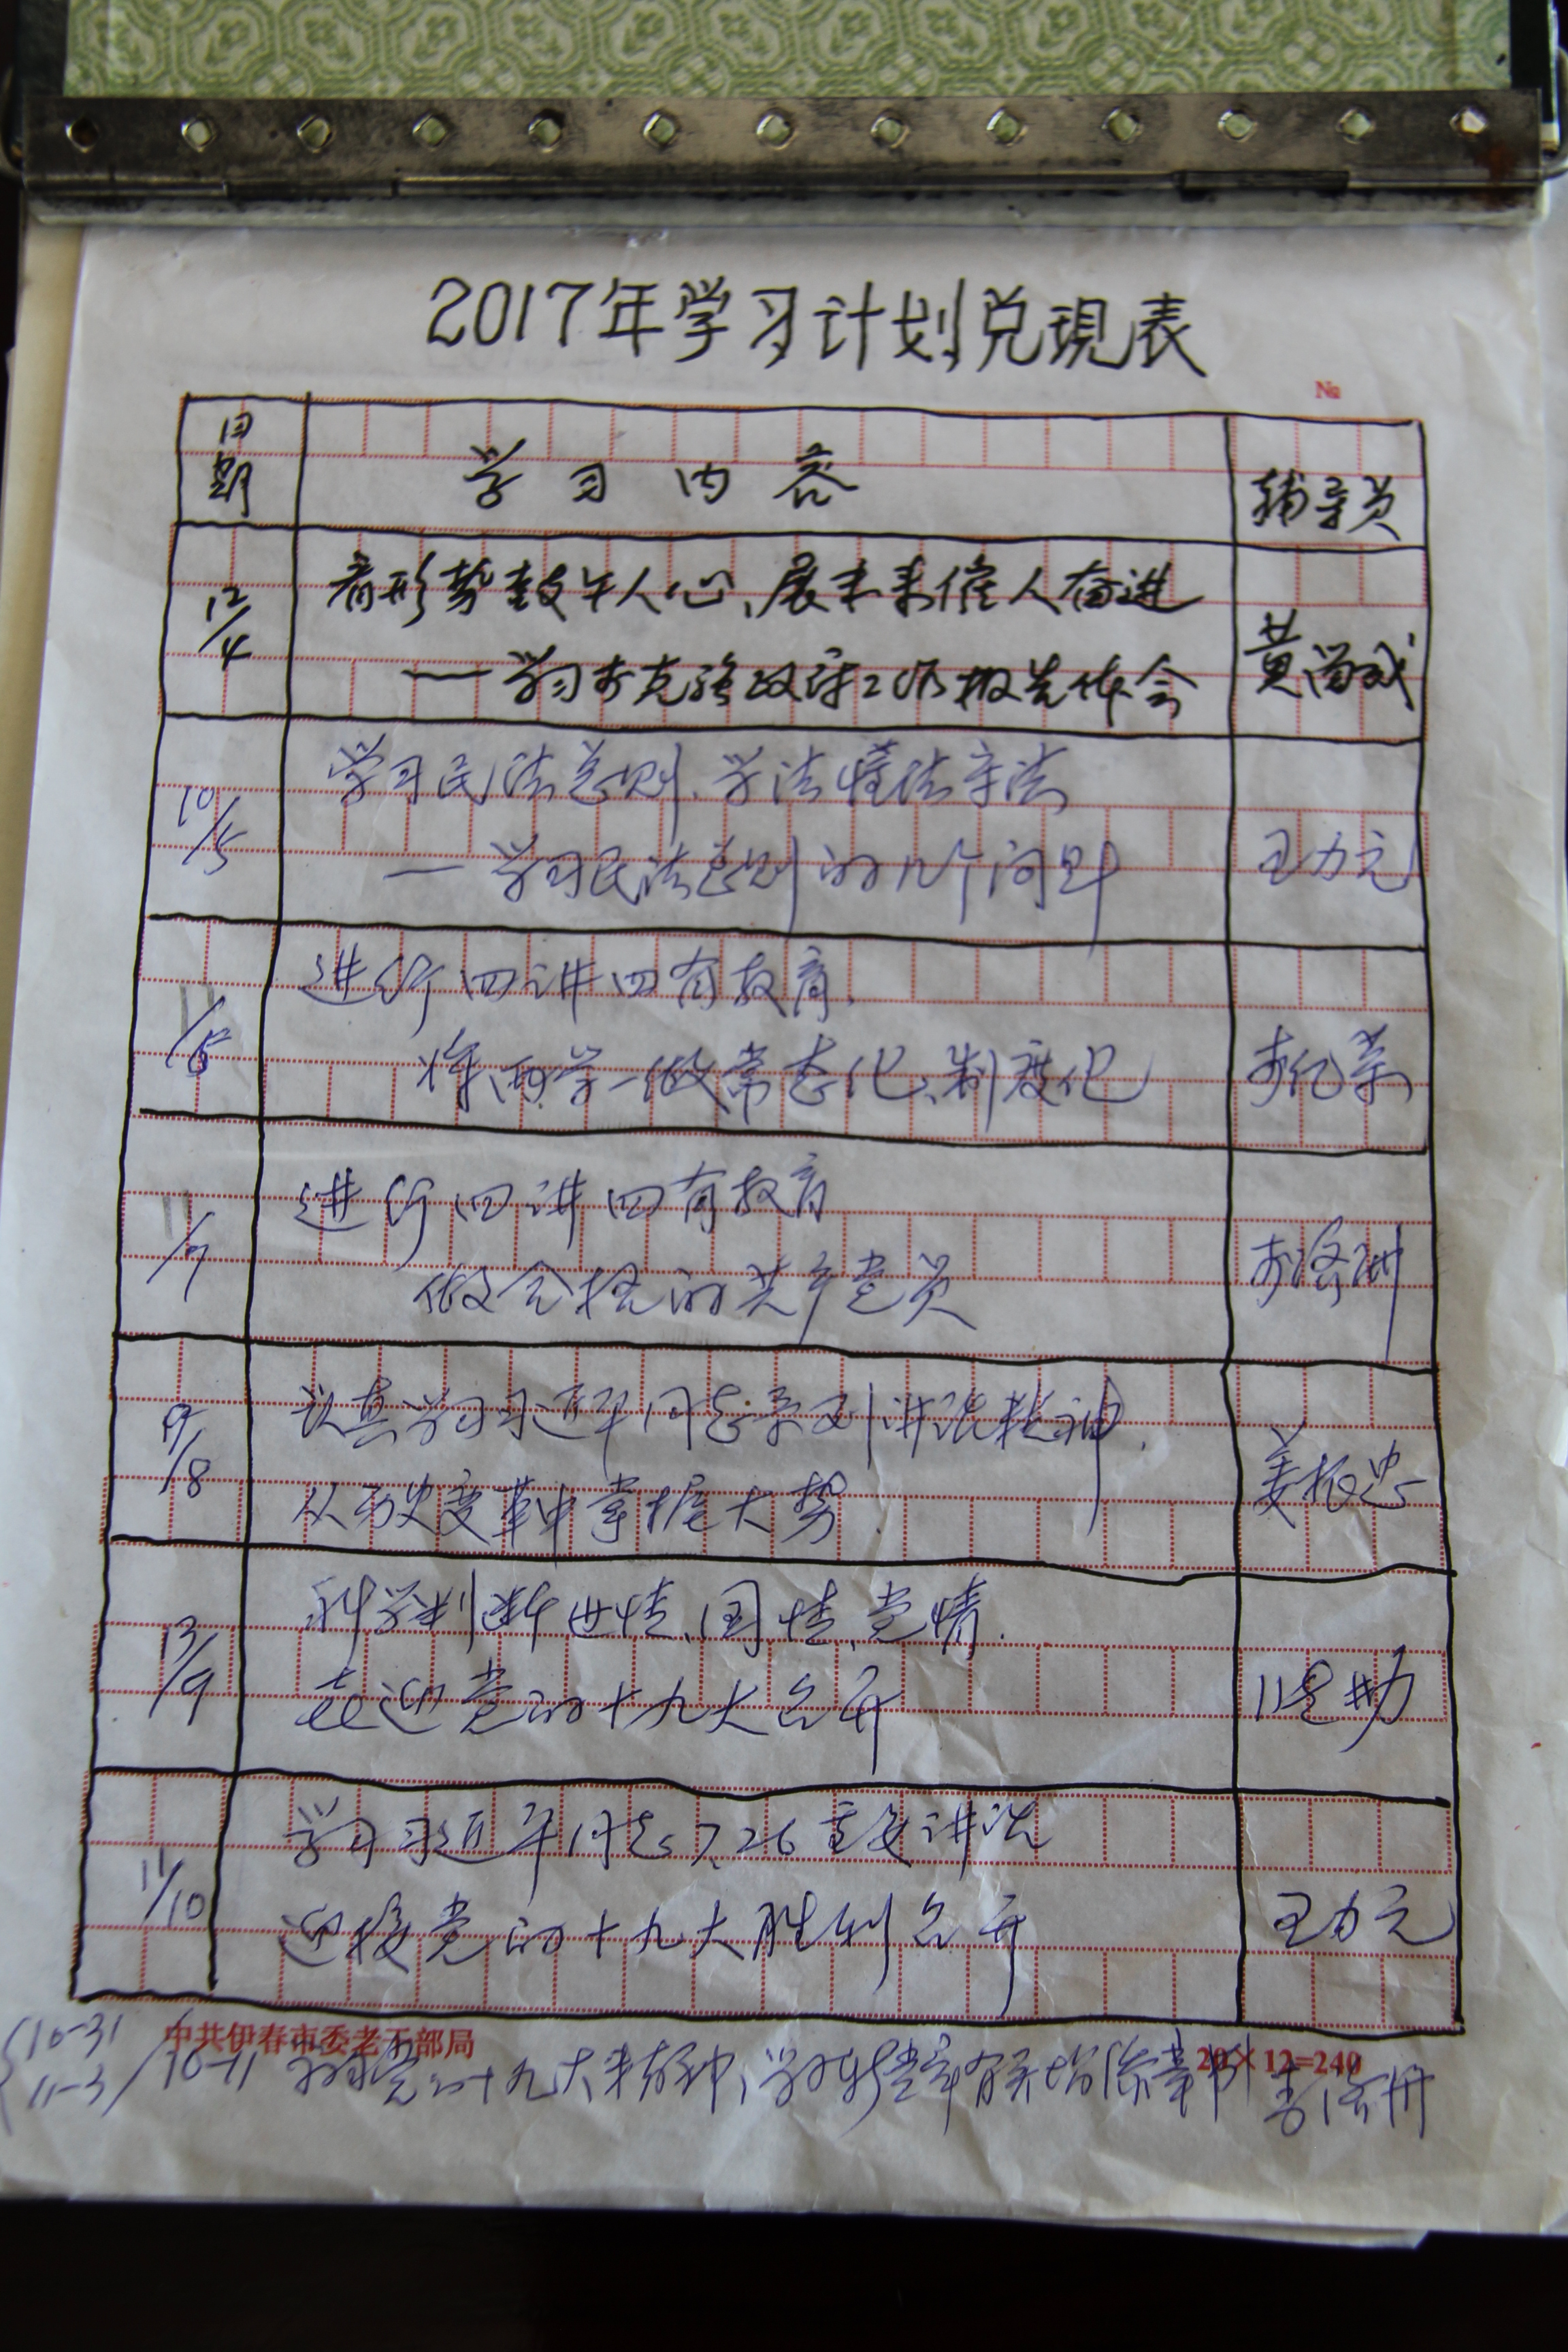 2017年学习计划兑现表
№
日期 学习内容 辅导员
12/4 看形势鼓午人心、展未来催人奋进
—学习李克强政府工作报告体会
黄尚成
10/5 学习民法总则、学法懂法守法
—学习民法总则的几个问题
王力元
进行四讲四有教育、
/6 将两学一做常态化、制度化
进行四讲四有教育
/7 做合格的共产党员
李洛洲
认真学习习近平同志系列讲话精神、
9/8 从历史变革中掌握大势
姜振忠
科学判断世情、国情、党情.
13/9 喜迎党的十九大召开
学习习近平同志7.26重要讲话
11/10 迎接党的十九大胜利召开
王力元
中共伊春市委老干部局
20×12=240
10-31
11-3 / 10-11 党的十九大精神、学习